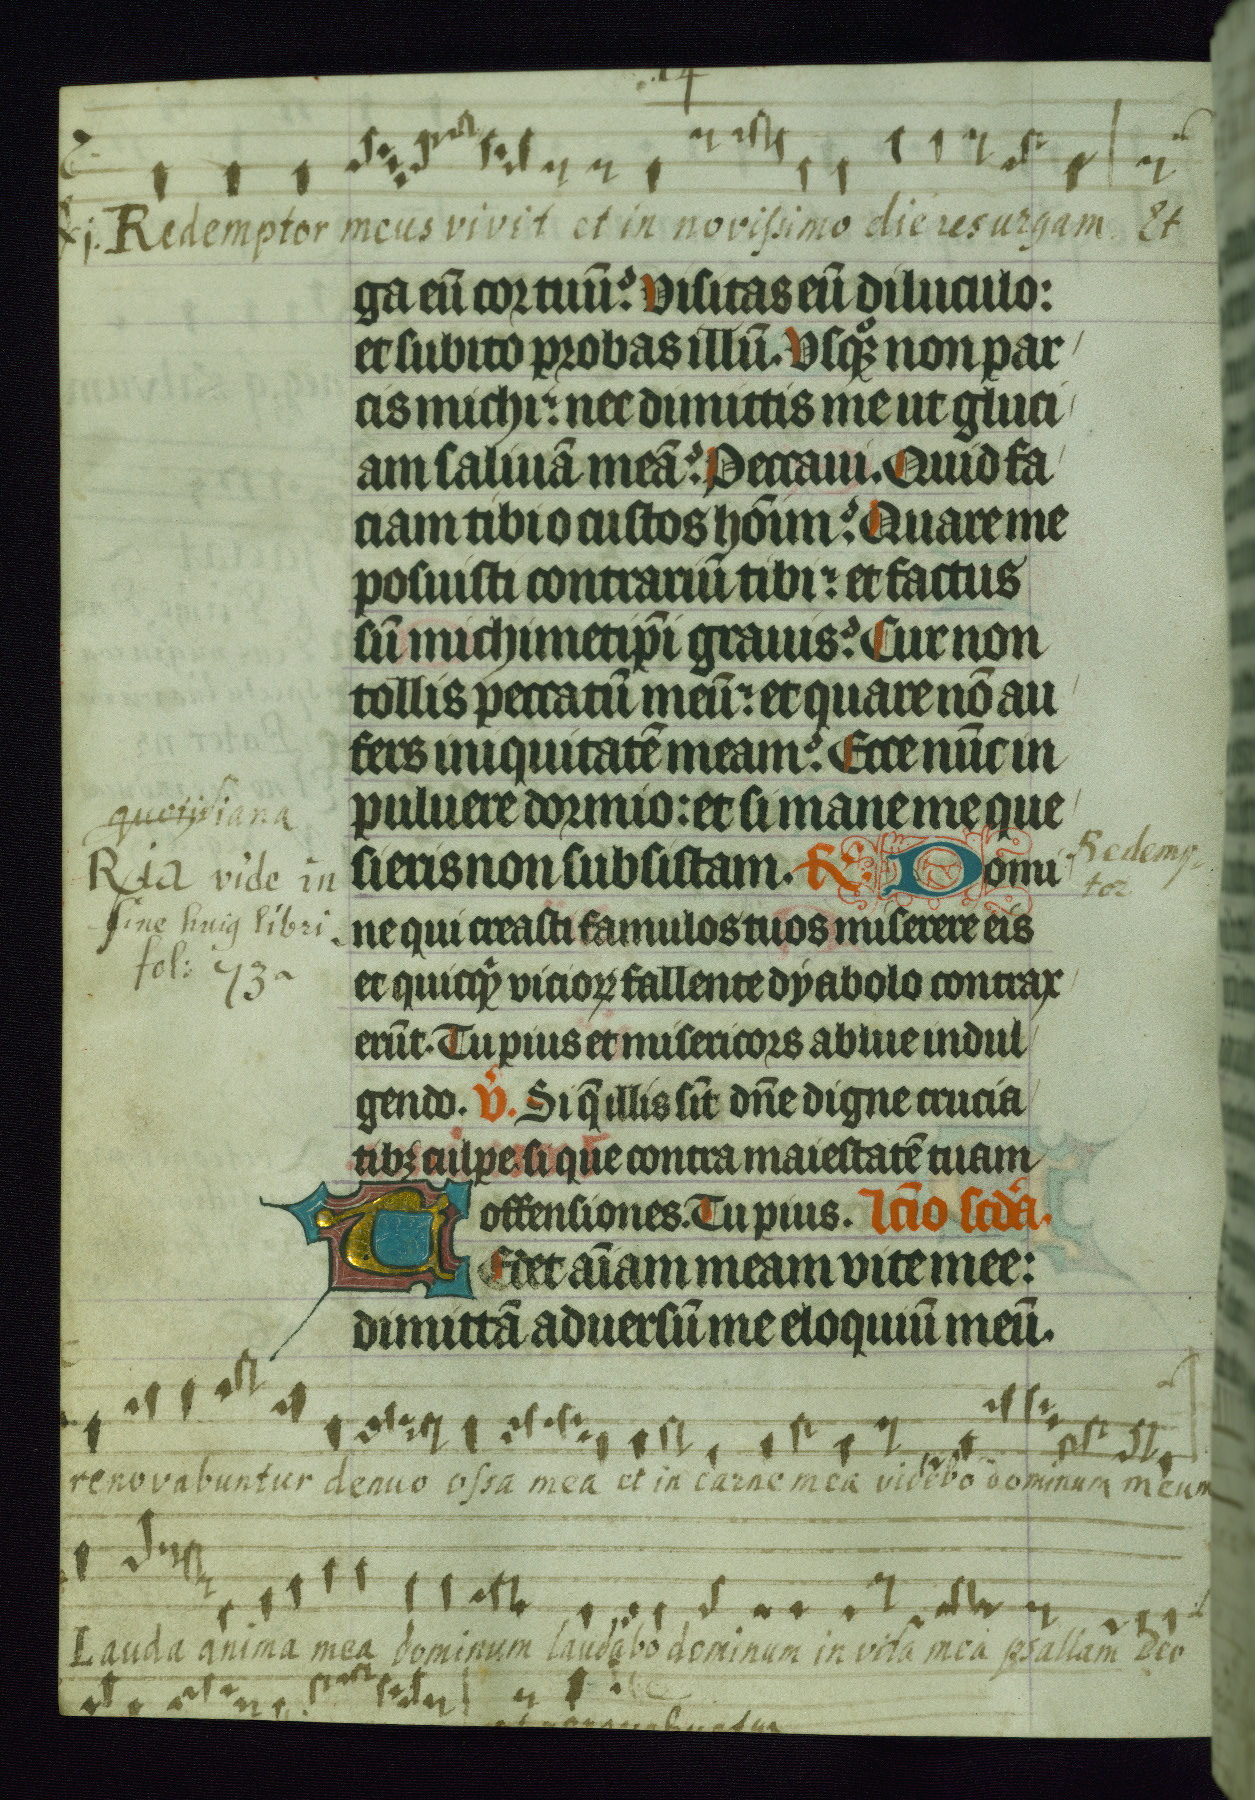 j. Redemptor meus vivit et in novissimo die resurgam. Et
ga eū cor tuū? Visitas eū diluculo:
et subito probas illū. Vsqȝ non par
cis michi: nec dimittis me ut gluci
am saliuā meā? Peccaui. Quid fa
ciam tibi o custos hōim? Quare me
posuisti contrariū tibi: et factus
sū michimetip̄i grauis? Cur non
tollis peccatū meū: et quare nō au
fers iniquitatē meam? Ecce nūc in
puluere dormio: et si mane me que
sieris non subsistam. R. Domi
ne qui creasti famulos tuos miserere eis
et quicqȝ vicioꝝ fallente dyabolo contrax
erūt. Tu pius et misericors ablue indul
gendo. V. Si q̄ illis sūt dn̄e digne crucia
tibȝ culpe. si que contra maiestatē tuam
offensiones. Tu pius. Lc̄io scd̄a.
Tedet aīam meam vite mee:
dimittā aduersū me eloquiū meū.
quotidiana
Ria vide in
fine huiq libri
fol: 73
Redemp
tor
renovabuntur denuo ossa mea et in carne mea videbo dominum meum
Lauda anima mea dominum laudabo dominum in vita mea psallam deo